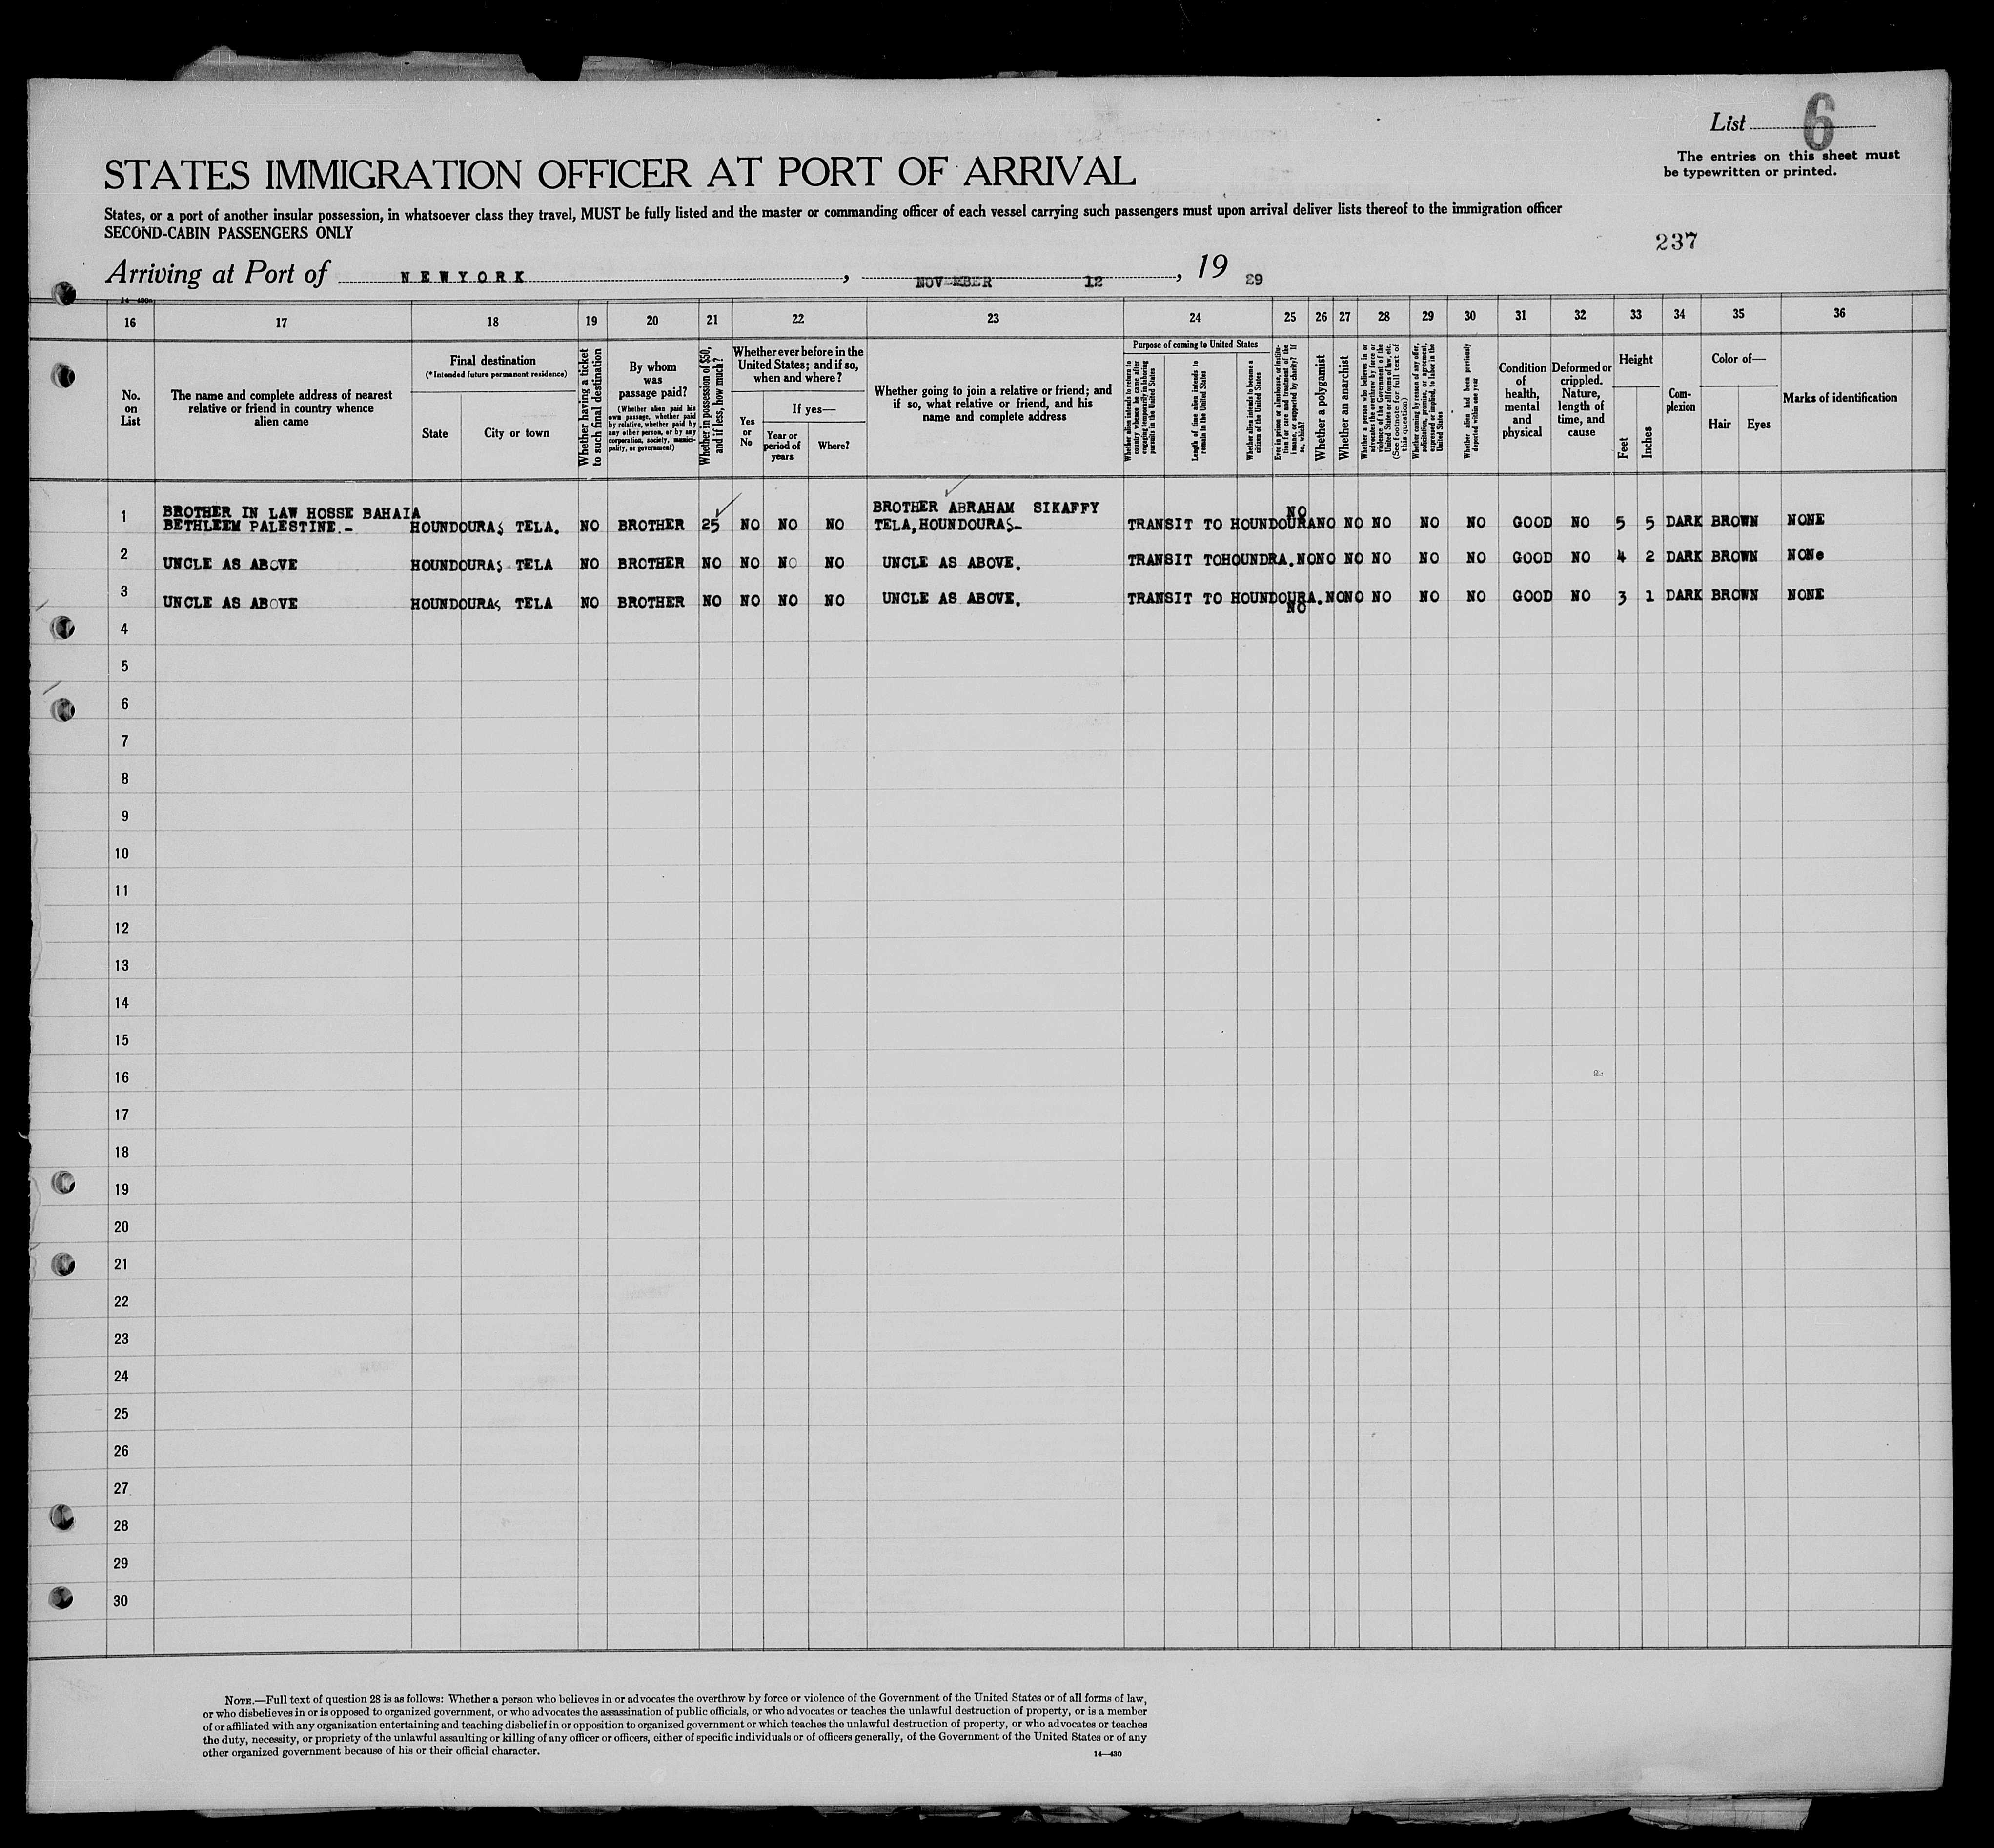 List 6
The entries on this sheet must
be typewritten or printed.
STATES IMMIGRATION OFFICER AT PORT OF ARRIVAL
States, or a port of another insular possession, in whatsoever class they travel, MUST be fully listed and the master or commanding officer of each vessel carrying such passengers must upon arrival deliver lists thereof to the immigration officer
SECOND-CABIN PASSENGERS ONLY
237
Arriving at Port of NEWYORK, NOVEMBER 12, 19 29
16 17 18 19 20 21 22 23 24 25 26 27 28 29 30 31 32 33 34 35 36
No. on List
The name and complete address of nearest relative or friend in country whence alien came
Final destination
(*Intended future permanent residence)
State
City or town
Whether having a ticket to such final destination
By whom was passage paid?
(Whether alien paid his own passage, whether paid by relative, whether paid by any other person, or by any corporation, society, municipality, or government)
Whether in possession of $50, and if less, how much?
Whether ever before in the United States; and if so, when and where?
Yes or No
If yes—
Year or period of years
Where?
Whether going to join a relative or friend; and if so, what relative or friend, and his name and complete address
Purpose of coming to United States
Whether alien intends to return to country whence he came after engaging temporarily in laboring pursuits in the United States
Length of time alien intends to remain in the United States
Whether alien intends to become a citizen of the United States
Ever in prison or almshouse, or institution for care and treatment of the insane, or supported by charity? If so, which?
Whether a polygamist
Whether an anarchist
Whether a person who believes in or advocates the overthrow by force or violence of the Government of the United States or all forms of law, etc. (See footnote for full text of this question)
Whether coming by reason of any offer, solicitation, promise, or agreement, expressed or implied, to labor in the United States
Whether alien had been previously deported within one year
Condition of health, mental and physical
Deformed or crippled. Nature, length of time, and cause
Height
Feet
Inches
Complexion
Color of—
Hair
Eyes
Marks of identification
1 BROTHER IN LAW HOSSE BAHAIA BETHLEEM PALESTINE.- HOUNDOURAS TELA. NO BROTHER 25 NO NO NO BROTHER ABRAHAM SIKAFFY TELA,HOUNDOURAS- TRANSIT TO HOUNDOURANO NO NO NO NO NO GOOD NO 5 5 DARK BROWN NONE
2 UNCLE AS ABOVE HOUNDOURAS TELA NO BROTHER NO NO NO NO UNCLE AS ABOVE. TRANSIT TOHOUNDRA.NONO NO NO NO NO GOOD NO 4 2 DARK BROWN NONe
3 UNCLE AS ABOVE HOUNDOURAS TELA NO BROTHER NO NO NO NO UNCLE AS ABOVE. TRANSIT TO HOUNDOURA.NONO NO NO NO NO GOOD NO 3 1 DARK BROWN NONE
4
5
6
7
8
9
10
11
12
13
14
15
16
17
18
19
20
21
22
23
24
25
26
27
28
29
30
NOTE.—Full text of question 28 is as follows: Whether a person who believes in or advocates the overthrow by force or violence of the Government of the United States or of all forms of law,
or who disbelieves in or is opposed to organized government, or who advocates the assassination of public officials, or who advocates or teaches the unlawful destruction of property, or is a member
of or affiliated with any organization entertaining and teaching disbelief in or opposition to organized government or which teaches the unlawful destruction of property, or who advocates or teaches
the duty, necessity, or propriety of the unlawful assaulting or killing of any officer or officers, either of specific individuals or of officers generally, of the Government of the United States or of any
other organized government because of his or their official character.
14—430